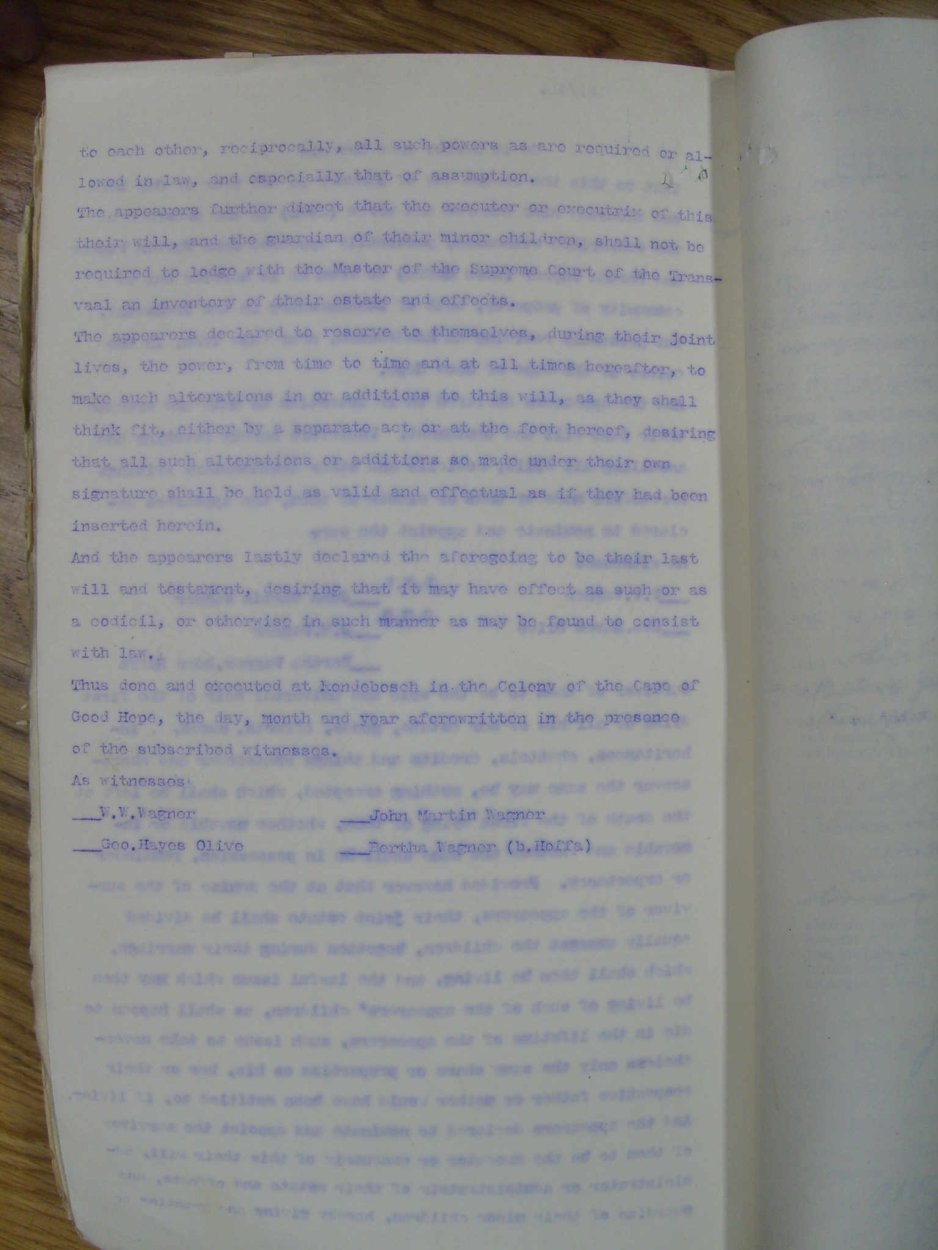 to each other, reciprocally, all such powers as are required or al-
lowed in law, and especially that of assumption.
The appearers further direct that the executor or executrix of this
their will, and the guardian of their minor children, shall not be
required to lodge with the Master of the Supreme Court of the Trans-
vaal an inventory of their estate and effects.
The appearers declared to reserve to themselves, during their joint
lives, the power, from time to time and at all times hereafter, to
make such alterations in or additions to this will, as they shall
think fit, either by a separate act or at the foot hereof, desiring
that all such alterations or additions so made under their own
signature shall be held as valid and effectual as if they had been
inserted herein.
And the appearers lastly declared the aforegoing to be their last
will and testament, desiring that it may have effect as such or as
a codicil, or otherwise in such manner as may be found to consist
with law.
Thus done and executed at Rondebosch in the Colony of the Cape of
Good Hope, the day, month and year aforewritten in the presence
of the subscribed witnesses.
As witnesses
___W.W.Wagner ___John Martin Wagner
___Geo.Hayes Olive ___Bertha Wagner (b.Hoffa)